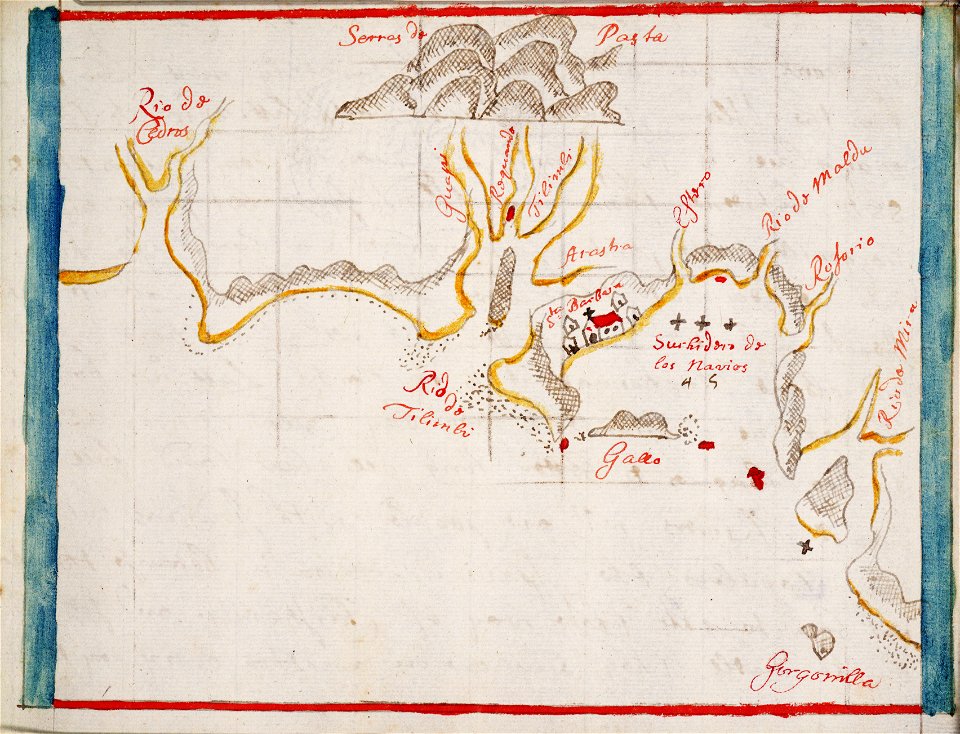 Serras de Pasta
Rio de
Cedros
Guapi
Roquando
Tilimbi
Arastra
Estero
Rio de Maldu
Rosorio
Rio de Mira
Sta Barbara
Surhidero de
los Navios
4 5
Rio de
Tilimbi
Gallo
Gorgonilla